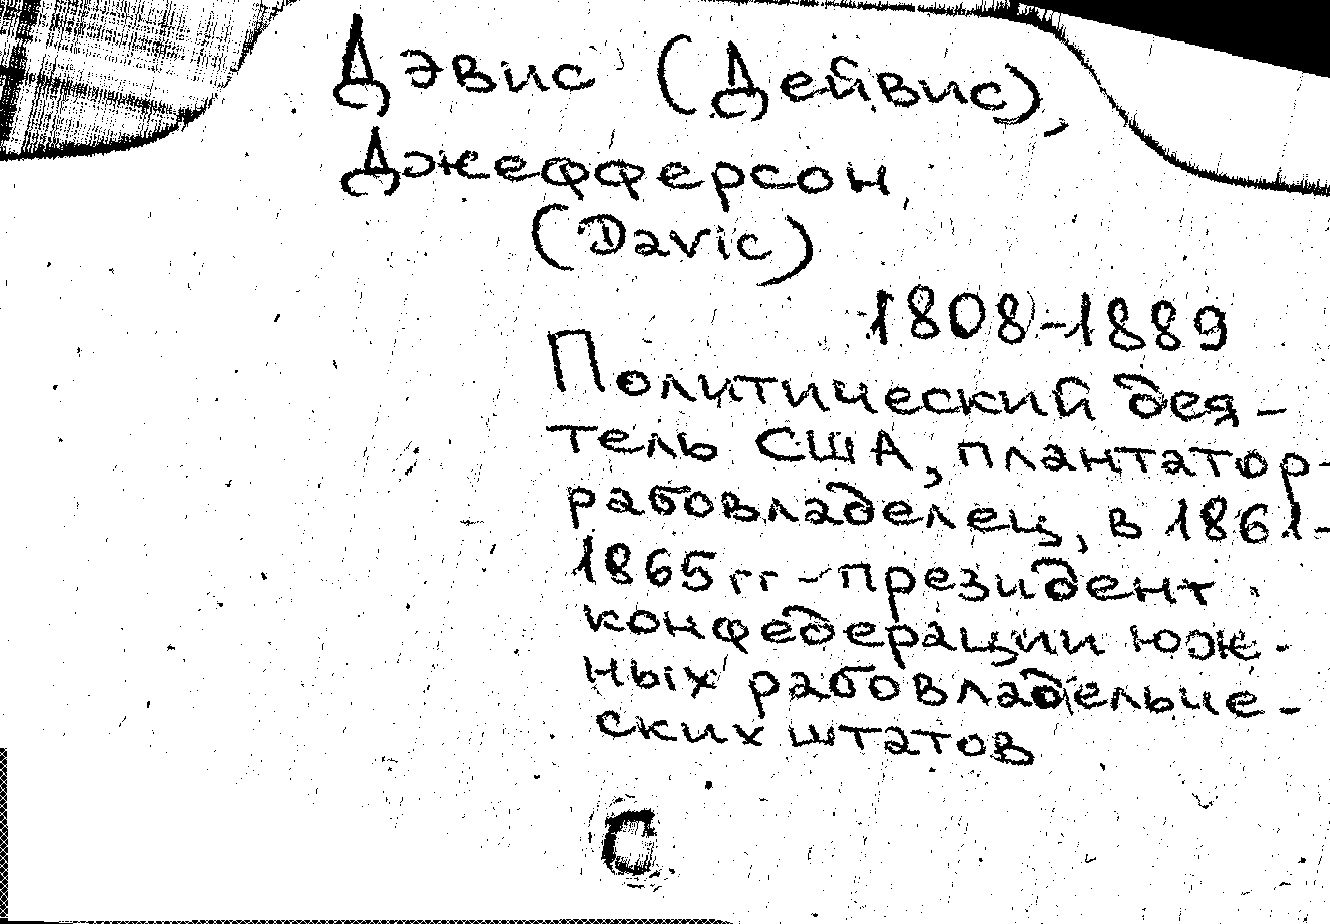 Дэвис (Дейвис),
Джефферсон
(Davic)
1808-1889
Политический дея-
тель США, плантатор-
рабовладелец, в 1861-
1865 гг - президент
конфедерации юж-
ных рабовладельче-
ских штатов